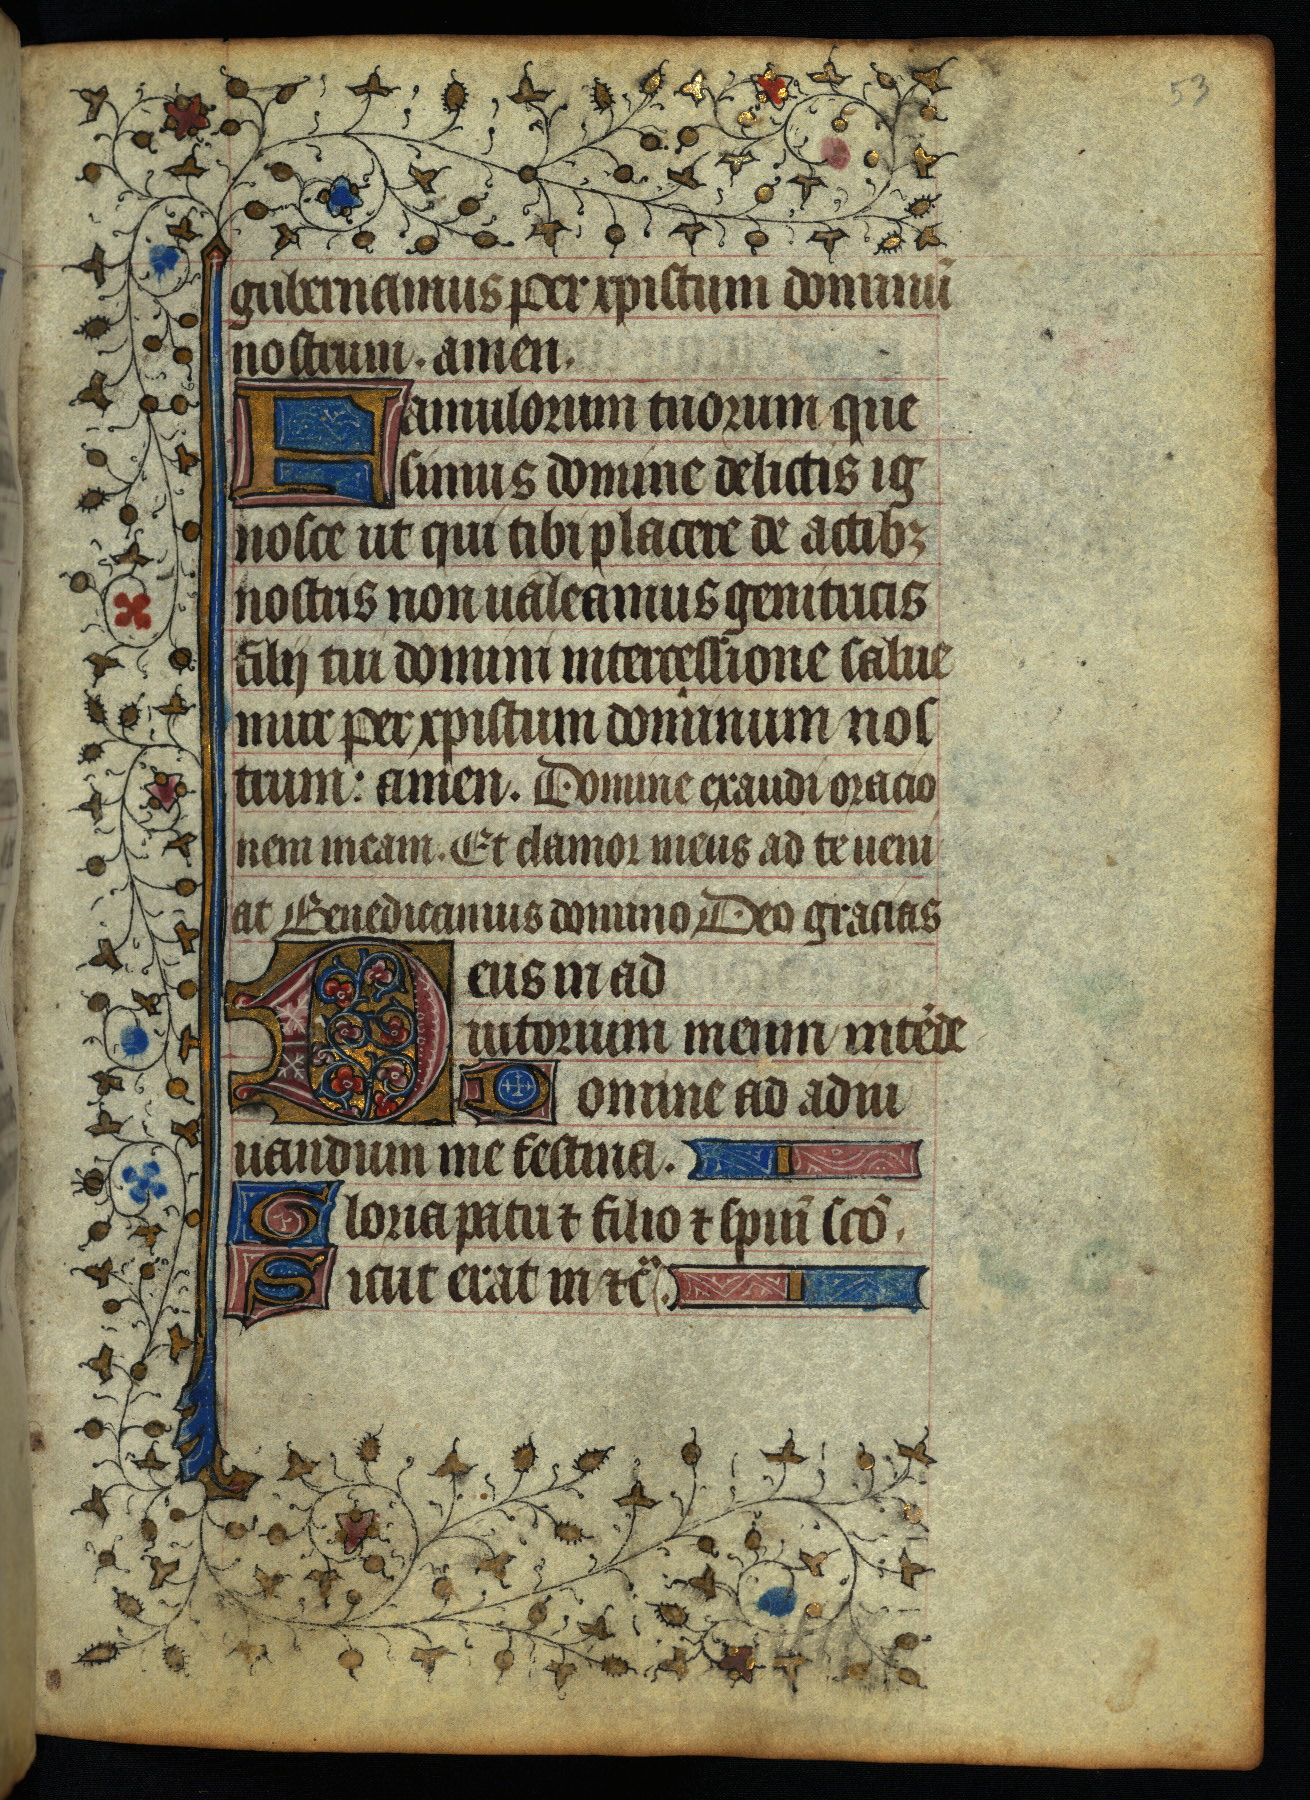 53
gubernamus per xpistum dominū
nostrum. amen.
Famulorum tuorum que
sumus domine delictis ig
nosce ut qui tibi placere de actibꝫ
nostris non ualeamus genitricis
filij tui domini intercessione salue
mur per xpistum dominum nos
trum: amen. Domine exaudi oracio
nem meam. Et clamor meus ad te ueni
at Benedicamus domino Deo gracias
Deus in ad
iutorium meum intēde
Domine ad adiu
uandum me festina.
Gloria patri ⁊ filio ⁊ spiri sco.
Sicut erat in ⁊c̄.